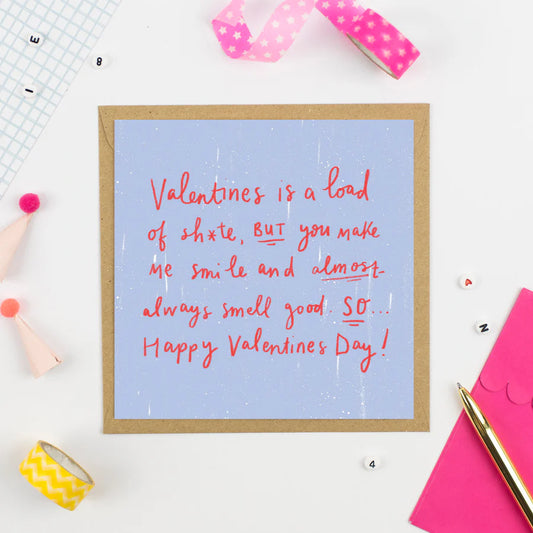 E
8
I
Valentines is a load
of sh*te, BUT you make
me smile and almost
always smell good. SO...
Happy Valentines Day!
A
N
4